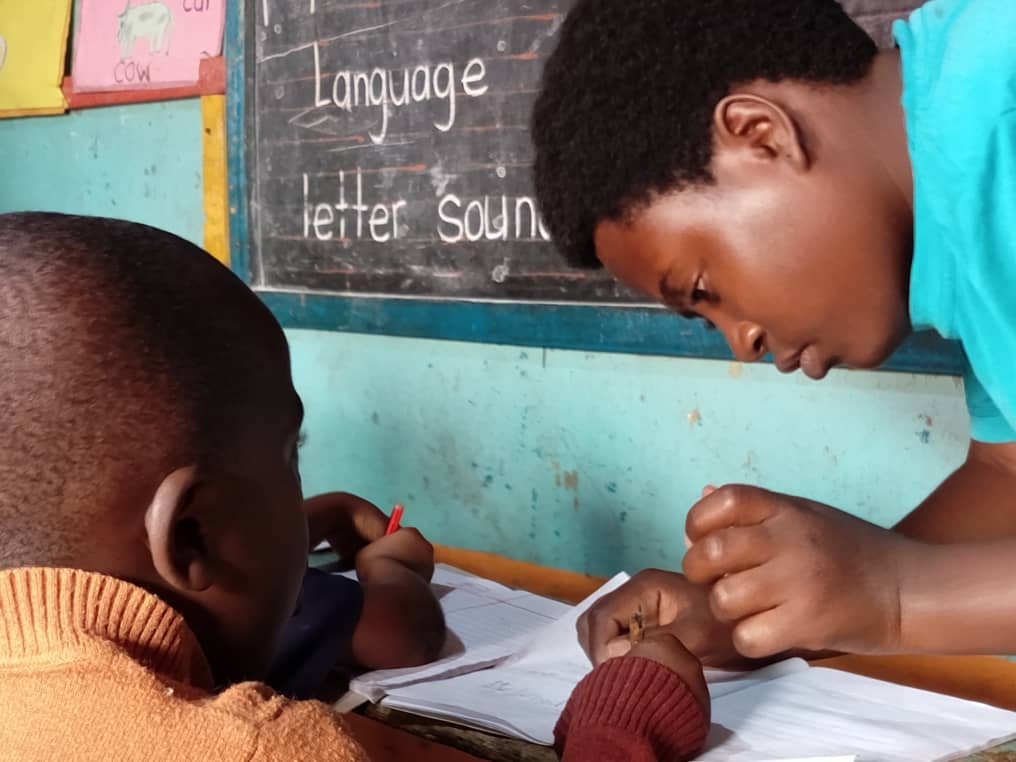 car
cow
Language
letter soun